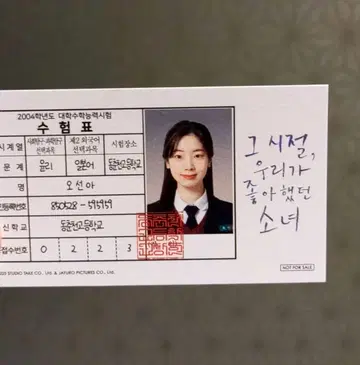 2004학년도 대학수학능력시험
수 험 표
시계열 사회탐구·과학탐구 선택과목 제2외국어 선택과목 시험장소
문 계 윤리 일본어 동춘천고등학교
명 오선아
록번호 850628-
신학교 동춘천고등학교
접수번호 0 2 2 3
그 시절,
우리가
좋아했던
소녀
STUDIO TAKE CO., Ltd. & JAYURO PICTURES CO., Ltd.
NOT FOR SALE